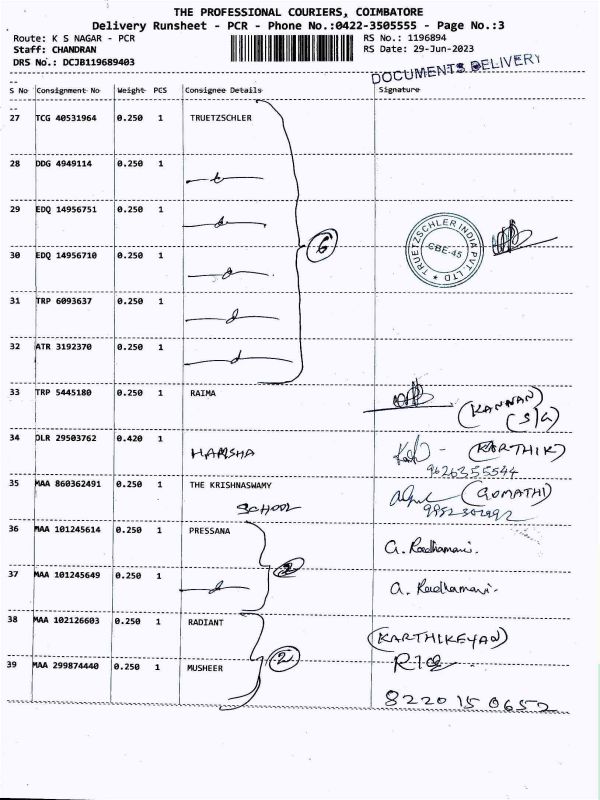 THE PROFESSIONAL COURIERS, COIMBATORE
Delivery Runsheet - PCR - Phone No.:0422-3505555 - Page No.:3
Route: K S NAGAR - PCR RS No.: 1196894
Staff: CHANDRAN RS Date: 29-Jun-2023
DRS No.: DCJB119689403
DOCUMENTS DELIVERY
S No Consignment No Weight PCS Consignee Details Signature
27 TCG 40531964 0.250 1 TRUETZSCHLER
28 DDG 4949114 0.250 1
29 EDQ 14956751 0.250 1
TRUETZSCHLER INDIA PVT. LTD
CBE-45
6
30 EDQ 14956710 0.250 1
31 TRP 6093637 0.250 1
32 ATR 3192370 0.250 1
33 TRP 5445180 0.250 1 RAIMA
(KANNAN)
(S/G)
34 DLR 29503762 0.420 1
HARSHA (KARTHIK)
9626355544
35 MAA 860362491 0.250 1 THE KRISHNASWAMY (GOMATHI)
SCHOOL
36 MAA 101245614 0.250 1 PRESSANA
a. Radhamani.
2
37 MAA 101245649 0.250 1 a. Radhamani.
38 MAA 102126603 0.250 1 RADIANT
(KARTHIKEYAN)
39 MAA 299874440 0.250 1 MUSHEER
2
8220150652